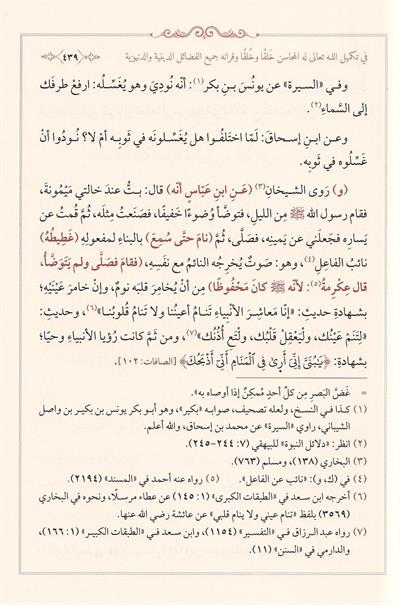 في تكميل الله تعالى له المحاسن خَلقًا وخُلقًا وقرانه جميع الفضائل الدينية والدنيوية ٤٣٩
وفي «السيرة» عن يونسَ بنِ بكر(١): أنّه نُودِيَ وهو يُغَسِّلُه: ارفعْ طرفَك
إلى السَّماءِ(٢).
وعن ابنِ إسحاقَ: لَمّا اختلَفُوا هل يُغَسِّلونَه في ثوبِه أمْ لا؟ نُودُوا أنْ
غَسِّلُوه في ثوبِه.
(و) رَوى الشيخانِ(٣) (عَنِ ابنِ عَبّاسٍ أنّه) قال: بِتُّ عندَ خالتي مَيْمُونةَ،
فقام رسول الله ﷺ مِن الليلِ، فتوضَّأ وُضوءًا خَفيفًا، فصَنَعتُ مِثلَه، ثُمَّ قُمتُ عن
يَسارِه فجَعلَني عن يَمينِه، فصَلَّى، ثُمَّ (نامَ حتَّى سُمِعَ) بالبناءِ لمفعولِه (غَطِيطُهُ)
نائبُ الفاعلِ(٤)، وهو: صَوتٌ يُخرِجُه النائمُ مع نفَسِه، (فقامَ فصَلَّى ولم يَتَوَضَّأْ،
قال عِكْرِمةُ(٥): لأنّه ﷺ كانَ مَحْفُوظًا) مِن أنْ يُخامِرَ قلبَه نومٌ، وإنْ خامَرَ عَيْنَيْهِ؛
بشهادةِ حديث: «إنّا مَعاشِرَ الأنْبِياءِ تَنامُ أعيُنُنا ولا تَنامُ قُلُوبُنا»(٦)، وحديثِ:
«لِتَنَمْ عَيْنُك، ولْيَعْقِلْ قَلْبُك، ولْتَعِ أُذُنُك»(٧)، ومن ثَمَّ كانت رُؤيا الأنبياءِ وحيًا؛
بشهادةِ: ﴿يَبُنَىَّ إِنِّىٓ أَرَىٰ فِى ٱلْمَنَامِ أَنِّىٓ أَذْبَحُكَ﴾ [الصافات: ١٠٢].
= غَضَّ البَصرِ مِن كلِّ أحدٍ مُمكِنٌ إذا أوصاه به».
(١) كذا في النسخ، ولعله تصحيف، صوابه «بكير»، وهو أبو بكر يونس بن بكير بن واصل
الشيباني، راوي «السيرة» عن محمد بن إسحاق، والله أعلم.
(٢) انظر: «دلائل النبوة» للبيهقي (٧: ٢٤٤-٢٤٥).
(٣) البخاري (١٣٨)، ومسلم (٧٦٣).
(٤) في (ك، و): «نائب عن الفاعل». (٥) رواه عنه أحمد في «المسند» (٢١٩٤).
(٦) أخرجه ابن سعد في «الطبقات الكبرى» (١: ١٤٥) عن عطاء مرسلًا، ونحوه في البخاري
(٣٥٦٩) بلفظ «تنام عيني ولا ينام قلبي» عن عائشة رضي الله عنها.
(٧) رواه عبد الرزاق في «التفسير» (١١٥٤)، وابن سعد في «الطبقات الكبير» (١: ١٦٦)،
والدارمي في «السنن» (١١).